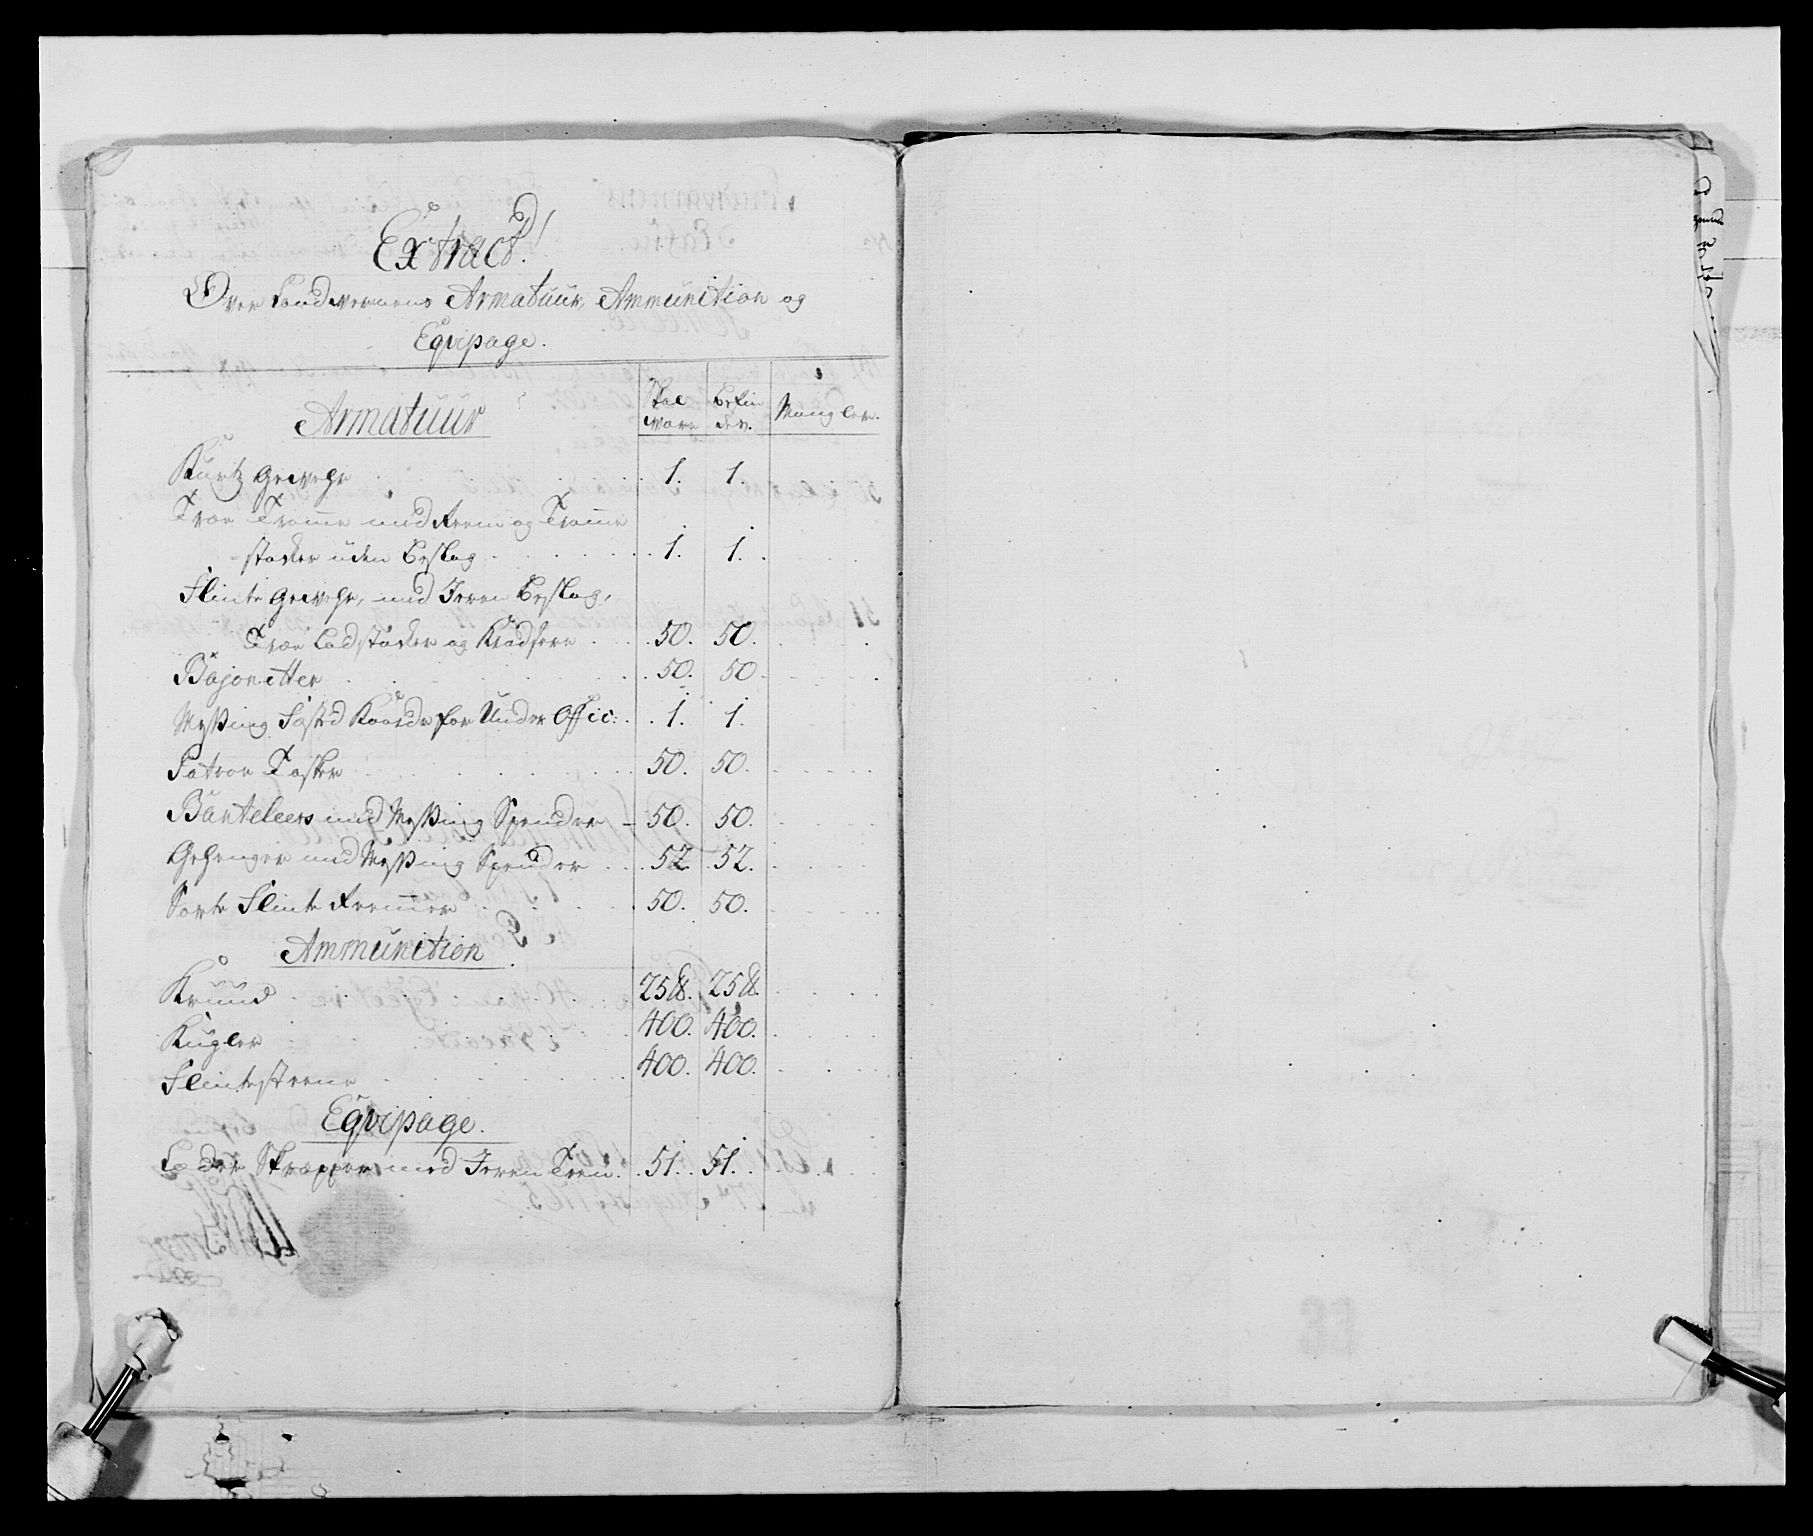 Extract!
Over Landwernens Armatuur, Ammunition og
Eqvipage.
Armatuur Skal være Befindes. Mangler.
Kurtz Gewehr 1. 1.
Træe Tromme med Reem og Tromme
-stokker uden Beslag 1. 1.
Flinte Gewehr, med Jeren Beslag,
Træe Ladstokker og Kradsere 50. 50.
Bajonetter 50. 50
Messing Fæsted Kaarde for Under Offic: 1. 1.
Patron Tasker 50. 50.
Banteleers med Messing Spender 50. 50.
Gehenger med Messing Spender 52 52.
Sorte Flinte Remmer 50. 50.
Ammunition
Kruud 25 ℔. 25 ℔.
Kugler 400. 400.
Flintesteene 400. 400.
Eqvipage.
Læder Skræpper med Jeren Tren. 51. 51.